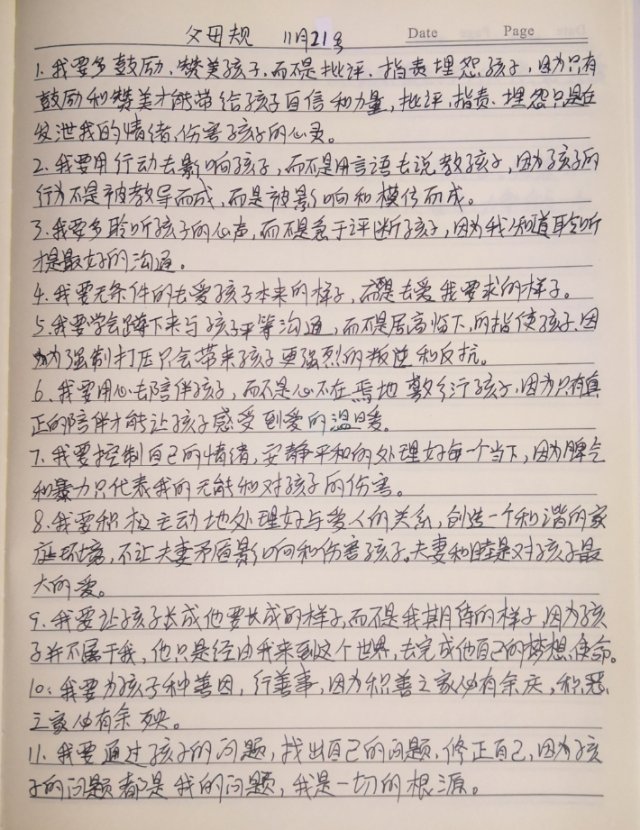 父母规 11月21号 Date Page
1. 我要多鼓励、赞美孩子,而不是批评、指责埋怨孩子,因为只有
鼓励和赞美才能带给孩子自信和力量,批评,指责、埋怨只是在
发泄我的情绪,伤害孩子的心灵。
2. 我要用行动去影响孩子,而不是用言语去说教孩子,因为孩子的
行为不是被教导而成,而是被影响和模仿而成。
3. 我要多聆听孩子的心声,而不是急于评断孩子,因为我知道聆听
才是最好的沟通。
4. 我要无条件的去爱孩子本来的样子,而不是去爱我要求的样子。
5. 我要学会蹲下来与孩子平等沟通,而不是居高临下的指使孩子,因
为强制打压只会带来孩子更强烈的叛逆和反抗。
6. 我要用心去陪伴孩子,而不是心不在焉地敷衍孩子,因为只有真
正的陪伴才能让孩子感受到爱的温暖。
7. 我要控制自己的情绪,安静平和的处理好每一个当下,因为脾气
和暴力只代表我的无能和对孩子的伤害。
8. 我要积极主动地处理好与爱人的关系,创造一个和谐的家
庭环境,不让夫妻矛盾影响和伤害孩子。夫妻和睦是对孩子最
大的爱。
9. 我要让孩子长成他要长成的样子,而不是我期待的样子,因为孩
子并不属于我,他只是经由我来到这个世界,去完成他自己的梦想、使命。
10: 我要为孩子种善因,行善事,因为积善之家必有余庆,积恶
之家必有余殃。
11. 我要通过孩子的问题,找出自己的问题,修正自己,因为孩
子的问题都是我的问题,我是一切的根源。